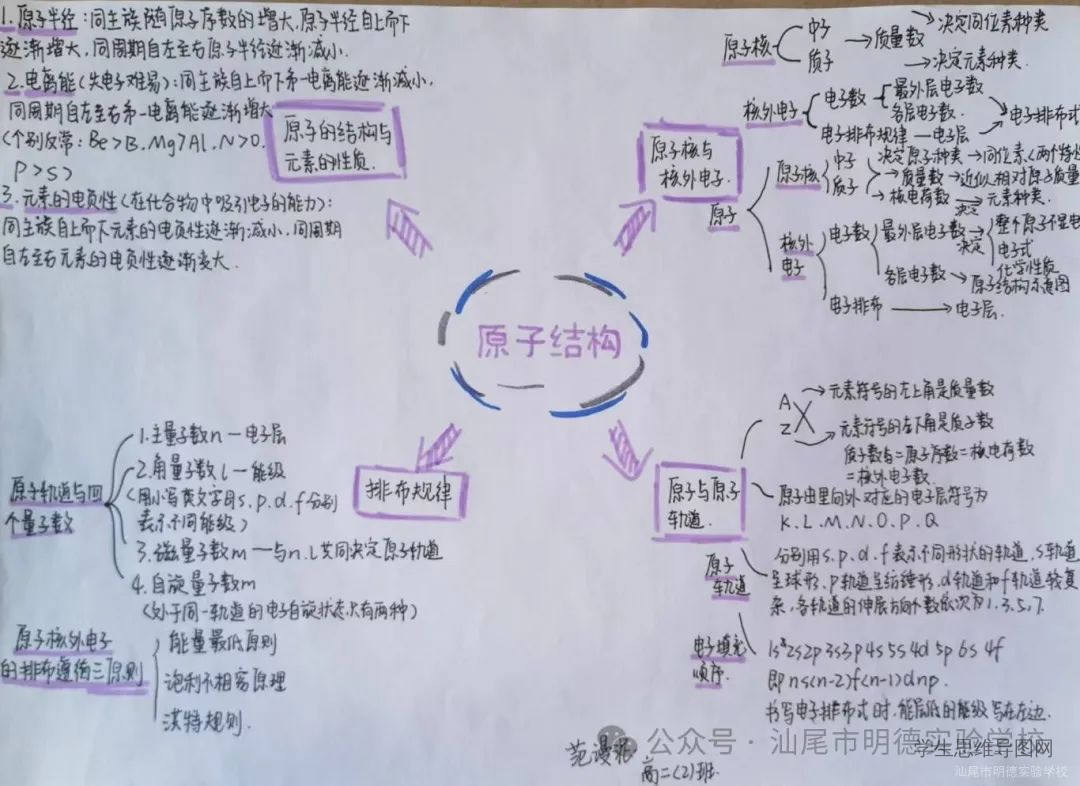 1.原子半径:同主族随原子序数的增大.原子半径自上而下
逐渐增大,同周期自左至右原子半径逐渐减小.
2.电离能(失电子难易):同主族自上而下第一电离能逐渐减小.
同周期自左至右第一电离能逐渐增大
(个别反常:Be>B.Mg>Al.N>O.
P>S)
3.元素的电负性(在化合物中吸引电子的能力):
同主族自上而下元素的电负性逐渐减小.同周期
自左至右元素的电负性逐渐变大.
原子的结构与
元素的性质.
原子核
中子
质子
→质量数
→决定同位素种类
→决定元素种类.
原子核与
核外电子.
核外电子
电子数
最外层电子数
各层电子数.
电子排布规律—电子层
→电子排布式
原子
原子核
中子
质子
决定原子种类→同位素(两个特性
→质量数→近似相对原子质量
→核电荷数
决定
元素种类.
核外
电子
电子数
最外层电子数
决定
整个原子不显电
电子式
化学性质
各层电子数→原子结构示意图
电子排布→电子层.
原子结构
原子轨道与四
个量子数
1.主量子数n—电子层
2.角量子数l—能级
(用小写英文字母s.p.d.f分别
表示不同能级)
3.磁量子数m—与n.l共同决定原子轨道
4.自旋量子数m
(处于同一轨道的电子自旋状态只有两种)
排布规律
原子核外电子
的排布遵循三原则
能量最低原则
泡利不相容原理
洪特规则.
原子与原子
轨道.
A
Z
X
→元素符号的左上角是质量数
元素符号的左下角是质子数
质子数=原子序数=核电荷数
=核外电子数.
原子由里向外对应的电子层符号为
K.L.M.N.O.P.Q
原子
轨道
分别用s.p.d.f表示不同形状的轨道.s轨道
呈球形.p轨道呈纺锤形.d轨道和f轨道较复
杂.各轨道的伸展方向个数依次为1.3.5.7.
电子填充
顺序.
1s²2s2p3s3p4s5s4d5p6s4f
即ns(n-2)f(n-1)dnp.
书写电子排布式时.能层低的能级写在左边.
高二(2)班.
公众号·汕尾市明德实验学校
学生思维导图网
汕尾市明德实验学校